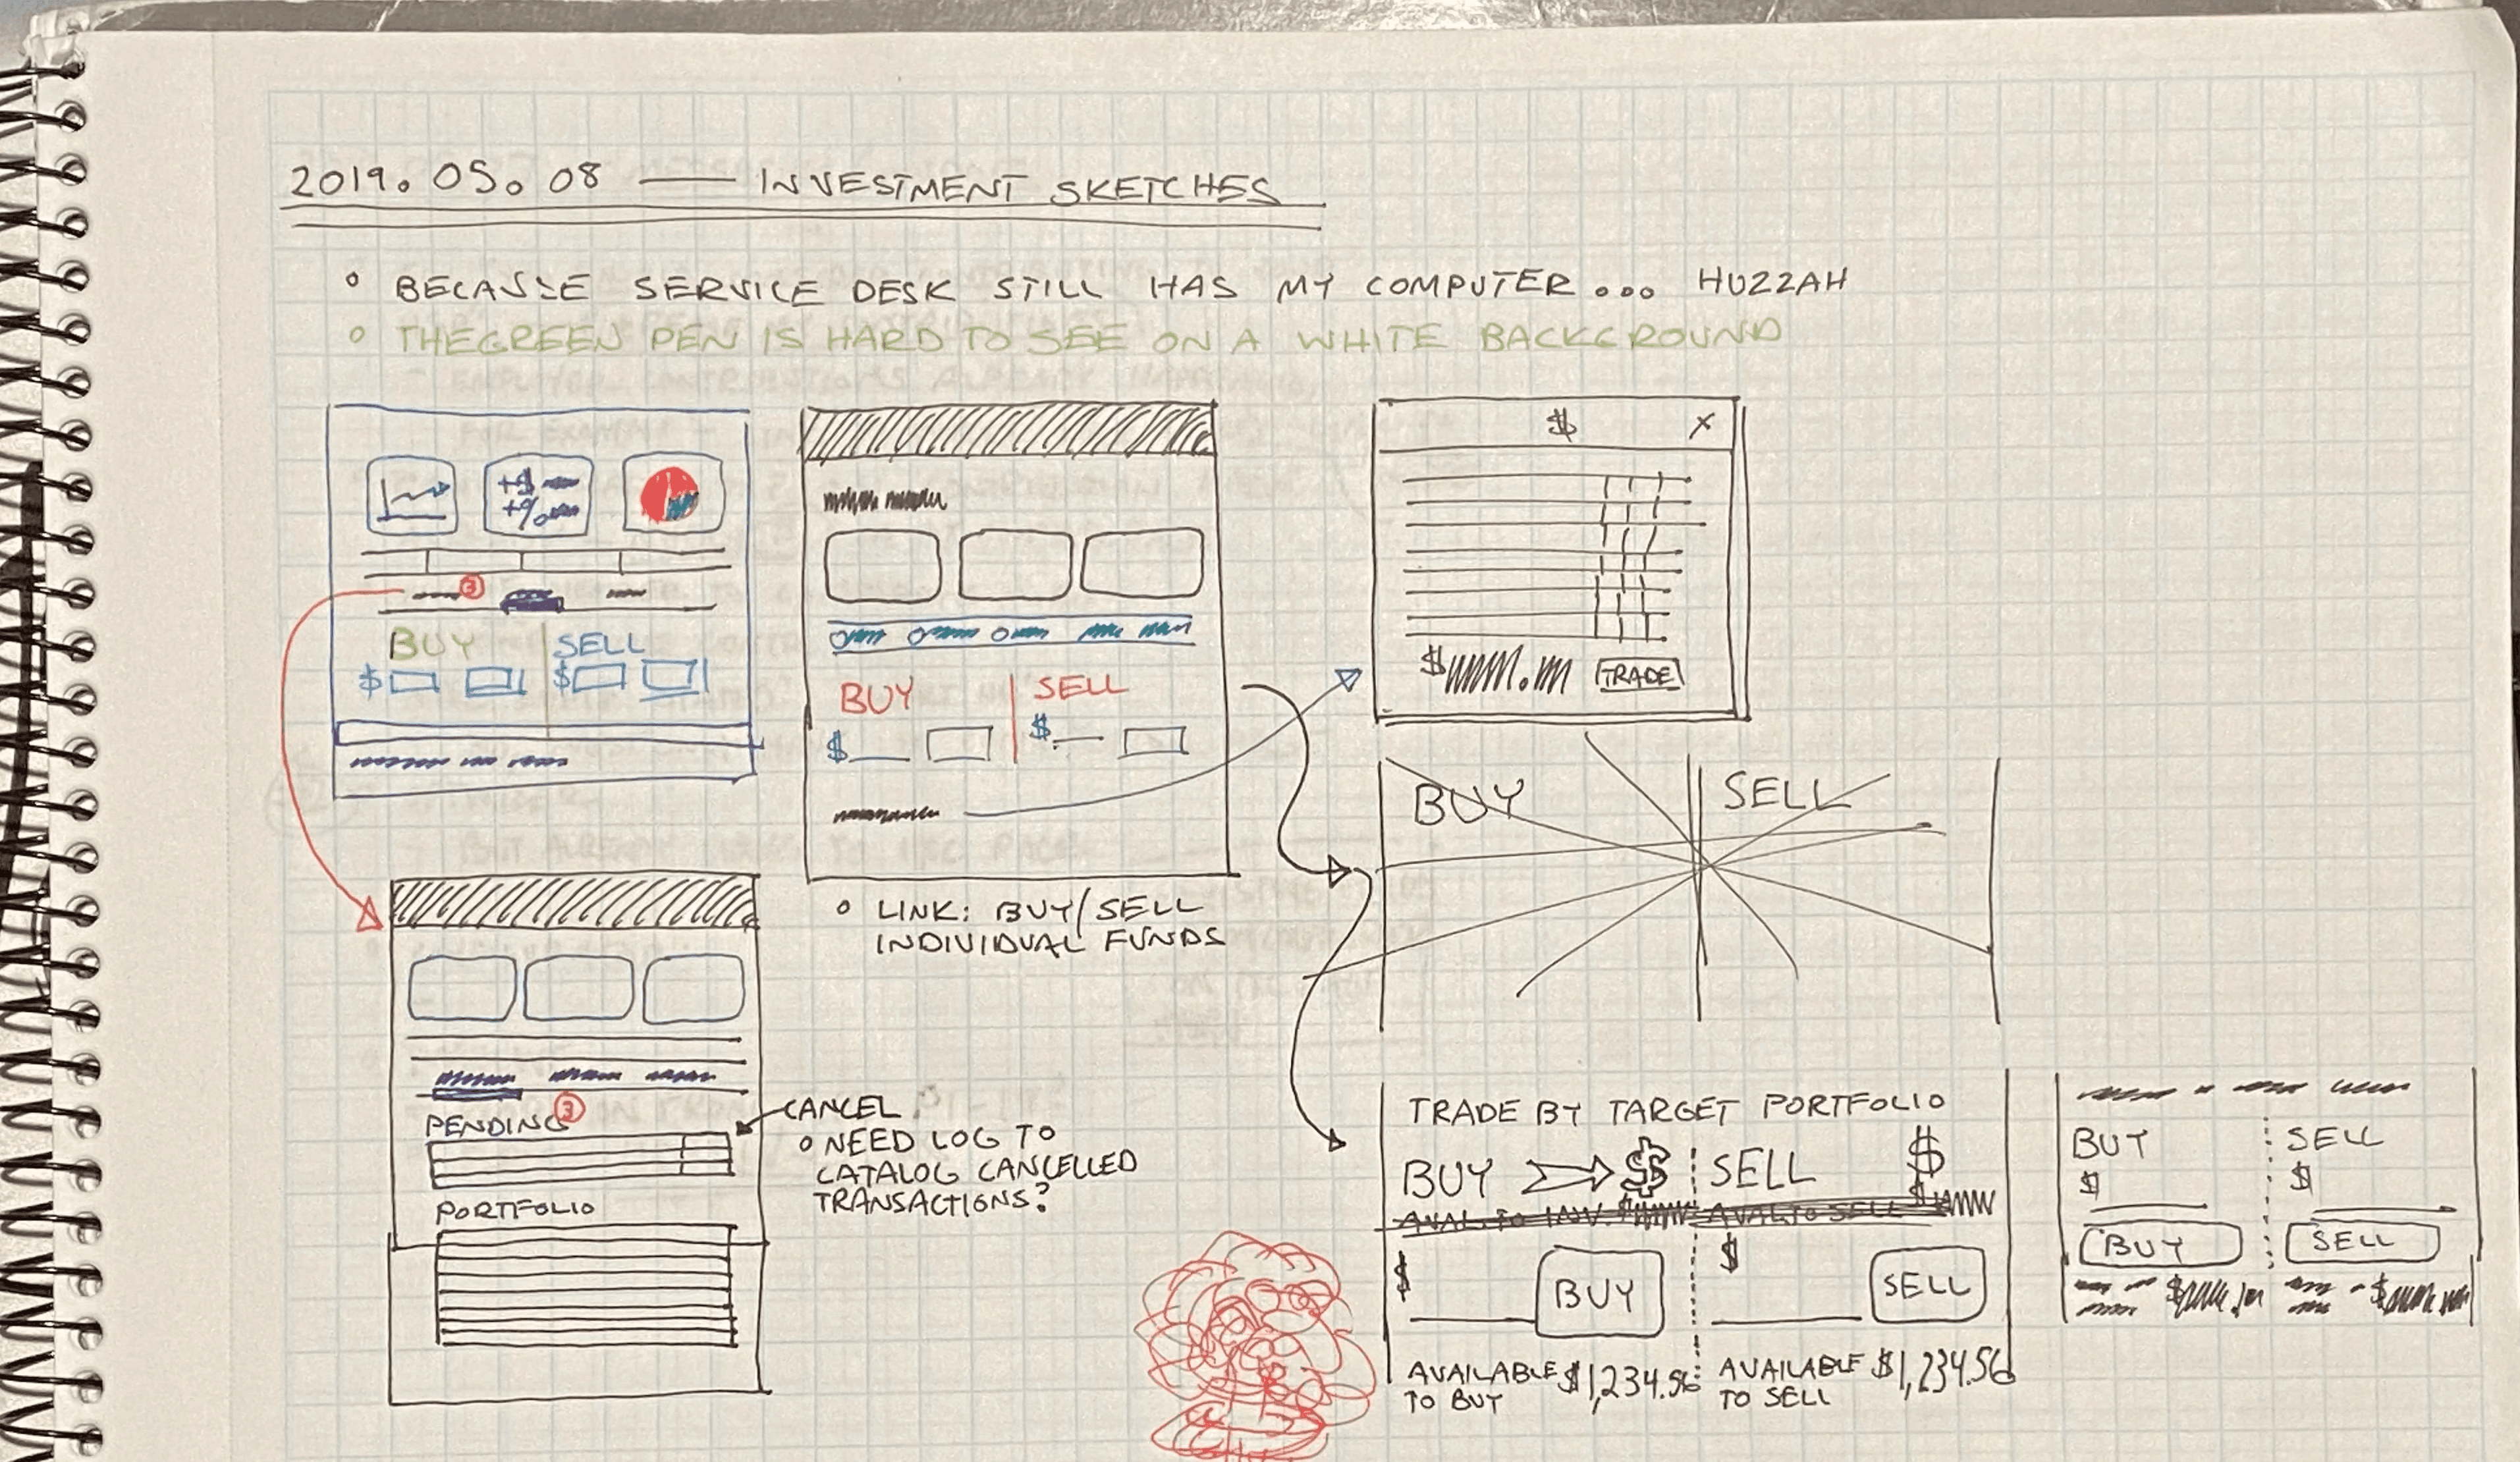 2019. 05. 08 — INVESTMENT SKETCHES
° BECAUSE SERVICE DESK STILL HAS MY COMPUTER... HUZZAH
° THE GREEN PEN IS HARD TO SEE ON A WHITE BACKGROUND
+$
+%
3
BUY SELL
$ $
BUY SELL
$ $
° LINK: BUY/SELL
INDIVIDUAL FUNDS
$ X
$ TRADE
BUY SELL
PENDING 3
PORTFOLIO
CANCEL
° NEED LOG TO
CATALOG CANCELLED
TRANSACTIONS?
TRADE BY TARGET PORTFOLIO
BUY $ SELL $
AVAIL. TO INV. $ AVAL TO SELL $
$ BUY $ SELL
AVAILABLE $1,234.56 AVAILABLE $1,234.56
TO BUY TO SELL
BUY SELL
$ $
BUY SELL
$ $